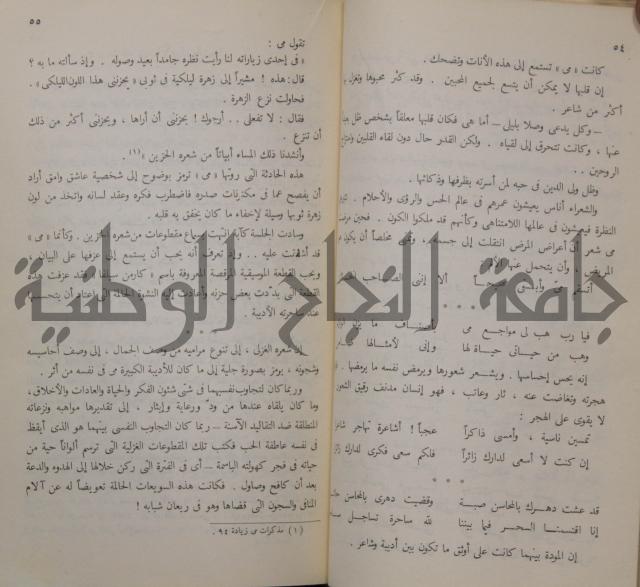 ٥٤
كانت « مى » تستمع إلى هذه الأنات وتضحك .
إن قلبها لا يمكن أن يتسع لجميع المحبين . وقد كثر محبوها وتغزل بها
أكثر من شاعر .
– وكل يدعى وصلا بليلى – أما هى فكان قلبها معلقاً بشخص ظل
عنها ، وكانت تتحرق إلى لقياه . ولكن القدر حال دون لقاء القلبين
الروحين . .
وظل ولى الدين فى حبه لمن أسرته بظرفها وذكائها .
والشعراء أناس يعيشون عمرهم فى عالم الحس والرؤى والأحلام .
النظرة فيعيشون فى عالمها اللامتناهى وكأنهم قد ملكوا الكون . فحين
مى شعر أن أعراض المرض انتقلت إلى جسمه ، مخلصاً أن يكون
المريض ، وأن يتحمل عنها
ألا إننى
فيا رب هب لى مواجع مى
وهب من حياتى حياة لها وإنى لأمثالها
إنه يحس إحساسها . ويشعر شعورها ويمرض نفسه ما يمرضها .
هجرته وتغاضت عنه ، ثار وعاتب ، فهو إنسان مدنف رقيق الشعور
لا يقوى على الهجر :
تمسين ناسية ، وأمسى ذاكراً عجباً ! أشاعرة تهاجر شاعرا
إن كنت لا أسعى لدارك زائراً فلكم سعى فكرى لدارك زائرا
* * *
قد عشت دهرك بالمحاسن صبة وقضيت دهرى بالمحاسن
إنا اقتسمنا السحر فيما بيننا لله ساحرة تساجل
إن المودة بينهما كانت على أوثق ما تكون بين أديبة وشاعر .
٥٥
تقول مى :
« فى إحدى زياراته لنا رأيت نظره جامداً بعيد وصوله . وإذ سألته ما به ؟
قال : هذه ! مشيراً إلى زهرة ليلكية فى ثوبى « يحزننى هذا اللون الليلكى » .
فحاولت نزع الزهرة .
فقال : لا تفعلى . . أرجوك ! يحزننى أن أراها ، ويحزننى أكثر من ذلك
أن تنزع .
وأنشدنا ذلك المساء أبياتاً من شعره الحزين » (١) .
هذه الحادثة التى روتها « مى » ترمز بوضوح إلى شخصية عاشق وامق أراد
أن يفصح عما فى مكنونات صدره فاضطرب فكره وعقد لسانه واتخذ من لون
زهرة ثوبها وسيلة لإخفاء ما كان يخفق به قلبه .
وسادت الجلسة كآبة انتهت بسماع مقطوعات من شعره الحزين . وكأنما « مى »
قد أشفقت عليه . . وإذ تعرف أنه يحب أن يستمع إلى عزفها على البيان ،
ويحب القطعة الموسيقية المرقصة المعروفة باسم « كارمن سيلفا » فقد عزفت هذه
القطعة التى بددت بعض حزنه وأعادت إليه النشوة الحالمة التى اعتاد أن
عند ساحرته الأدبية .
* * *
إن شعره الغزلى ، إلى تنوع مراميه من وصف الجمال ، إلى وصف أحاسيسه
وشجونه ، يرمز بصورة جلية إلى ما كان للأديبة الكبيرة مى فى نفسه من أثر .
وربما كان لتجاوب نفسيهما فى شتى شئون الفكر والحياة والعادات والأخلاق ،
وما كان يلقاه عندها من ود ورعاية وإيثار ، إلى تقديرها مواهبه ونزعاته
المنطلقة ضد التقاليد الآسنة – ربما كان التجاوب النفسى بينهما هو الذى أيقظ
فى نفسه عاطفة الحب فكتب تلك المقطوعات الغزلية التى ترسم ألواناً حية من
حياته فى فجر كهولته الباسمة – أى فى الفترة التى ركن خلالها إلى الهدوء والدعة
بعد أن كافح وصاول . فكانت هذه السويعات الحالمة تعويضاً له عن آلام
المنافى والسجون التى قضاها وهو فى ريعان شبابه !
(١) مذكرات مى زيادة ٩٤ .
جامعة النجاح الوطنية